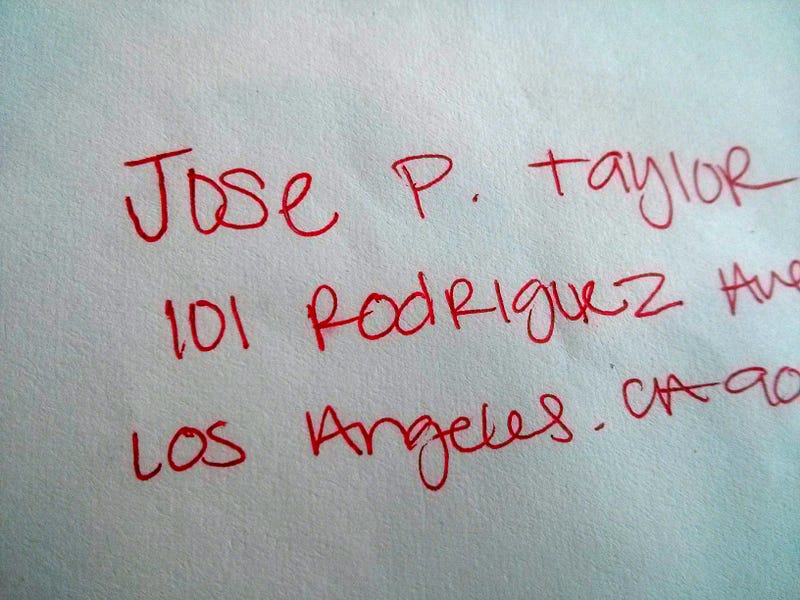 Jose P. Taylor
101 Rodriguez Ave
Los Angeles. CA 90